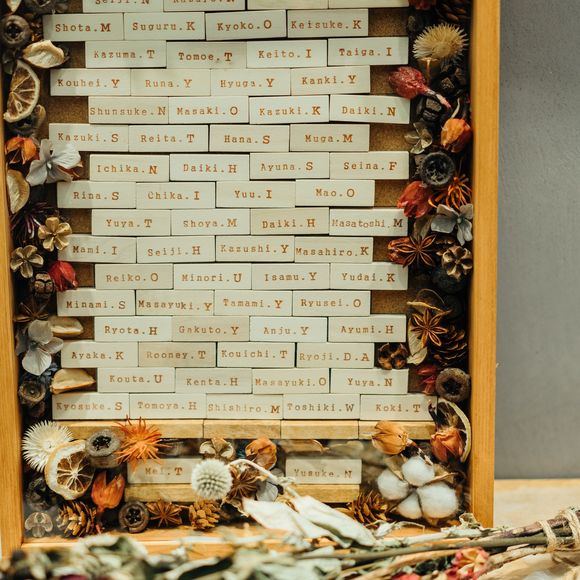 Shota.M Suguru.K Kyoko.O Keisuke.K
Kazuma.T Tomoe.T Keito.I Taiga.I
Kouhei.Y Runa.Y Hyuga.Y Kanki.Y
Shunsuke.N Masaki.O Kazuki.K Daiki.N
Kazuki.S Reita.T Hana.S Muga.M
Ichika.N Daiki.H Ayuna.S Seina.F
Rina.S Chika.I Yuu.I Mao.O
Yuya.T Shoya.M Daiki.H Masatoshi.M
Mami.I Seiji.H Kazushi.Y Masahiro.K
Reiko.O Minori.U Isamu.Y Yudai.K
Minami.S Masayuki.Y Tamami.Y Ryusei.O
Ryota.H Gakuto.Y Anju.Y Ayumi.H
Ayaka.K Rooney.T Kouichi.T Ryoji.D.A
Kouta.U Kenta.H Masayuki.O Yuya.N
Kyosuke.S Tomoya.H Shishiro.M Toshiki.W Koki.T
Mei.T Yusuke.N